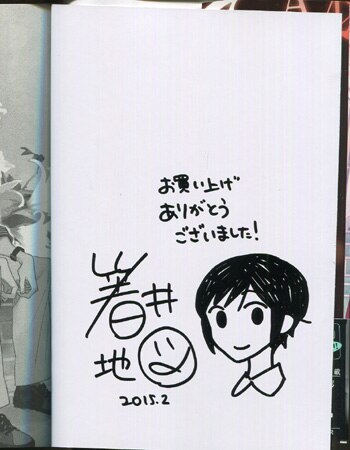 お買い上げ
ありがとう
ございました！
井
地
2015.2